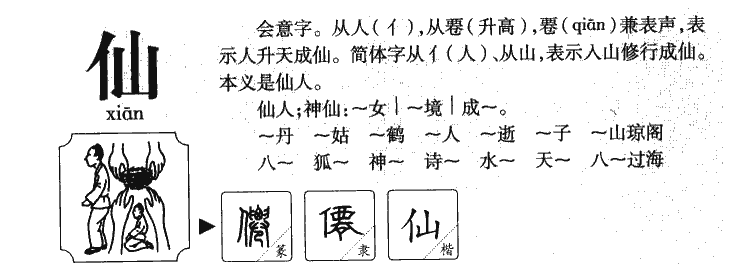 仙
xiān
会意字。从人(亻),从䙴(升高),䙴(qiān)兼表声,表
示人升天成仙。简体字从亻(人)、从山,表示入山修行成仙。
本义是仙人。
仙人;神仙:~女|~境|成~。
~丹 ~姑 ~鹤 ~人 ~逝 ~子 ~山琼阁
八~ 狐~ 神~ 诗~ 水~ 天~ 八~过海
僊 篆
僊 隶
仙 楷